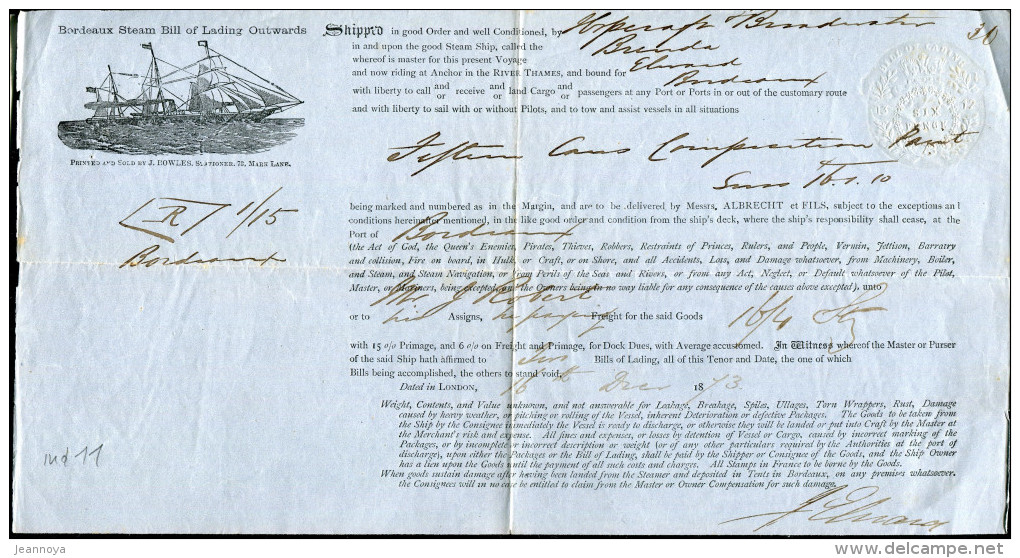 Bordeaux Steam Bill of Lading Outwards
PRINTED AND SOLD BY J. BOWLES, STATIONER, 72, MARK LANE.
30
Shipped in good Order and well Conditioned, by Broadwater
in and upon the good Steam Ship, called the Brenda
whereof is master for this present Voyage Elward
and now riding at Anchor in the RIVER THAMES, and bound for Bordeaux
with liberty to call and or receive and or land Cargo and or passengers at any Port or Ports in or out of the customary route
and with liberty to sail with or without Pilots, and to tow and assist vessels in all situations
Fifteen Cans Composition Paint
16.1.10
R 1/15
Bordeaux
being marked and numbered as in the Margin, and are to be delivered by Messrs. ALBRECHT et FILS, subject to the exceptions and
conditions hereinafter mentioned, in the like good order and condition from the ship's deck, where the ship's responsibility shall cease, at the
Port of Bordeaux
(the Act of God, the Queen's Enemies, Pirates, Thieves, Robbers, Restraints of Princes, Rulers, and People, Vermin, Jettison, Barratry
and collision, Fire on board, in Hulk, or Craft, or on Shore, and all Accidents, Loss, and Damage whatsoever, from Machinery, Boiler,
and Steam, and Steam Navigation, or from Perils of the Seas and Rivers, or from any Act, Neglect, or Default whatsoever of the Pilot,
Master, or Mariners, being excepted, and the Owners being in no way liable for any consequence of the causes above excepted), unto
Mr J Robert
or to his Assigns, he paying Freight for the said Goods 16/4
with 15 o/o Primage, and 6 o/o on Freight and Primage, for Dock Dues, with Average accustomed. In Witness whereof the Master or Purser
of the said Ship hath affirmed to two Bills of Lading, all of this Tenor and Date, the one of which
Bills being accomplished, the others to stand void.
Dated in LONDON, 16th Decr 1873.
Weight, Contents, and Value unknown, and not answerable for Leakage, Breakage, Spiles, Ullages, Torn Wrappers, Rust, Damage
caused by heavy weather, or pitching or rolling of the Vessel, inherent Deterioration or defective Packages. The Goods to be taken from
the Ship by the Consignee immediately the Vessel is ready to discharge, or otherwise they will be landed or put into Craft by the Master at
the Merchant's risk and expense. All fines and expenses, or losses by detention of Vessel or Cargo, caused by incorrect marking of the
Packages, or by incomplete or incorrect description or weight (or of any other particulars required by the Authorities at the port of
discharge), upon either the Packages or the Bill of Lading, shall be paid by the Shipper or Consignee of the Goods, and the Ship Owner
has a lien upon the Goods until the payment of all such costs and charges. All Stamps in France to be borne by the Goods.
When goods sustain damage after having been landed from the Steamer and deposited in Tents in Bordeaux, or any premises whatsoever,
the Consignees will in no case be entitled to claim from the Master or Owner Compensation for such damage.
jeannoya
delcampe.net